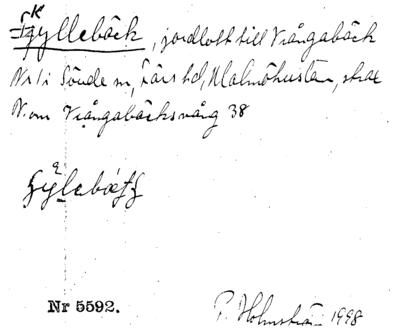 Kyllebäck, jordlott till Vrångabäck
Nr 1 i Sövde sn, Färs hd, Malmöhus län, strax
N. om Vrångabäcksvång 38
Nr 5592.
P. Holmström 1998